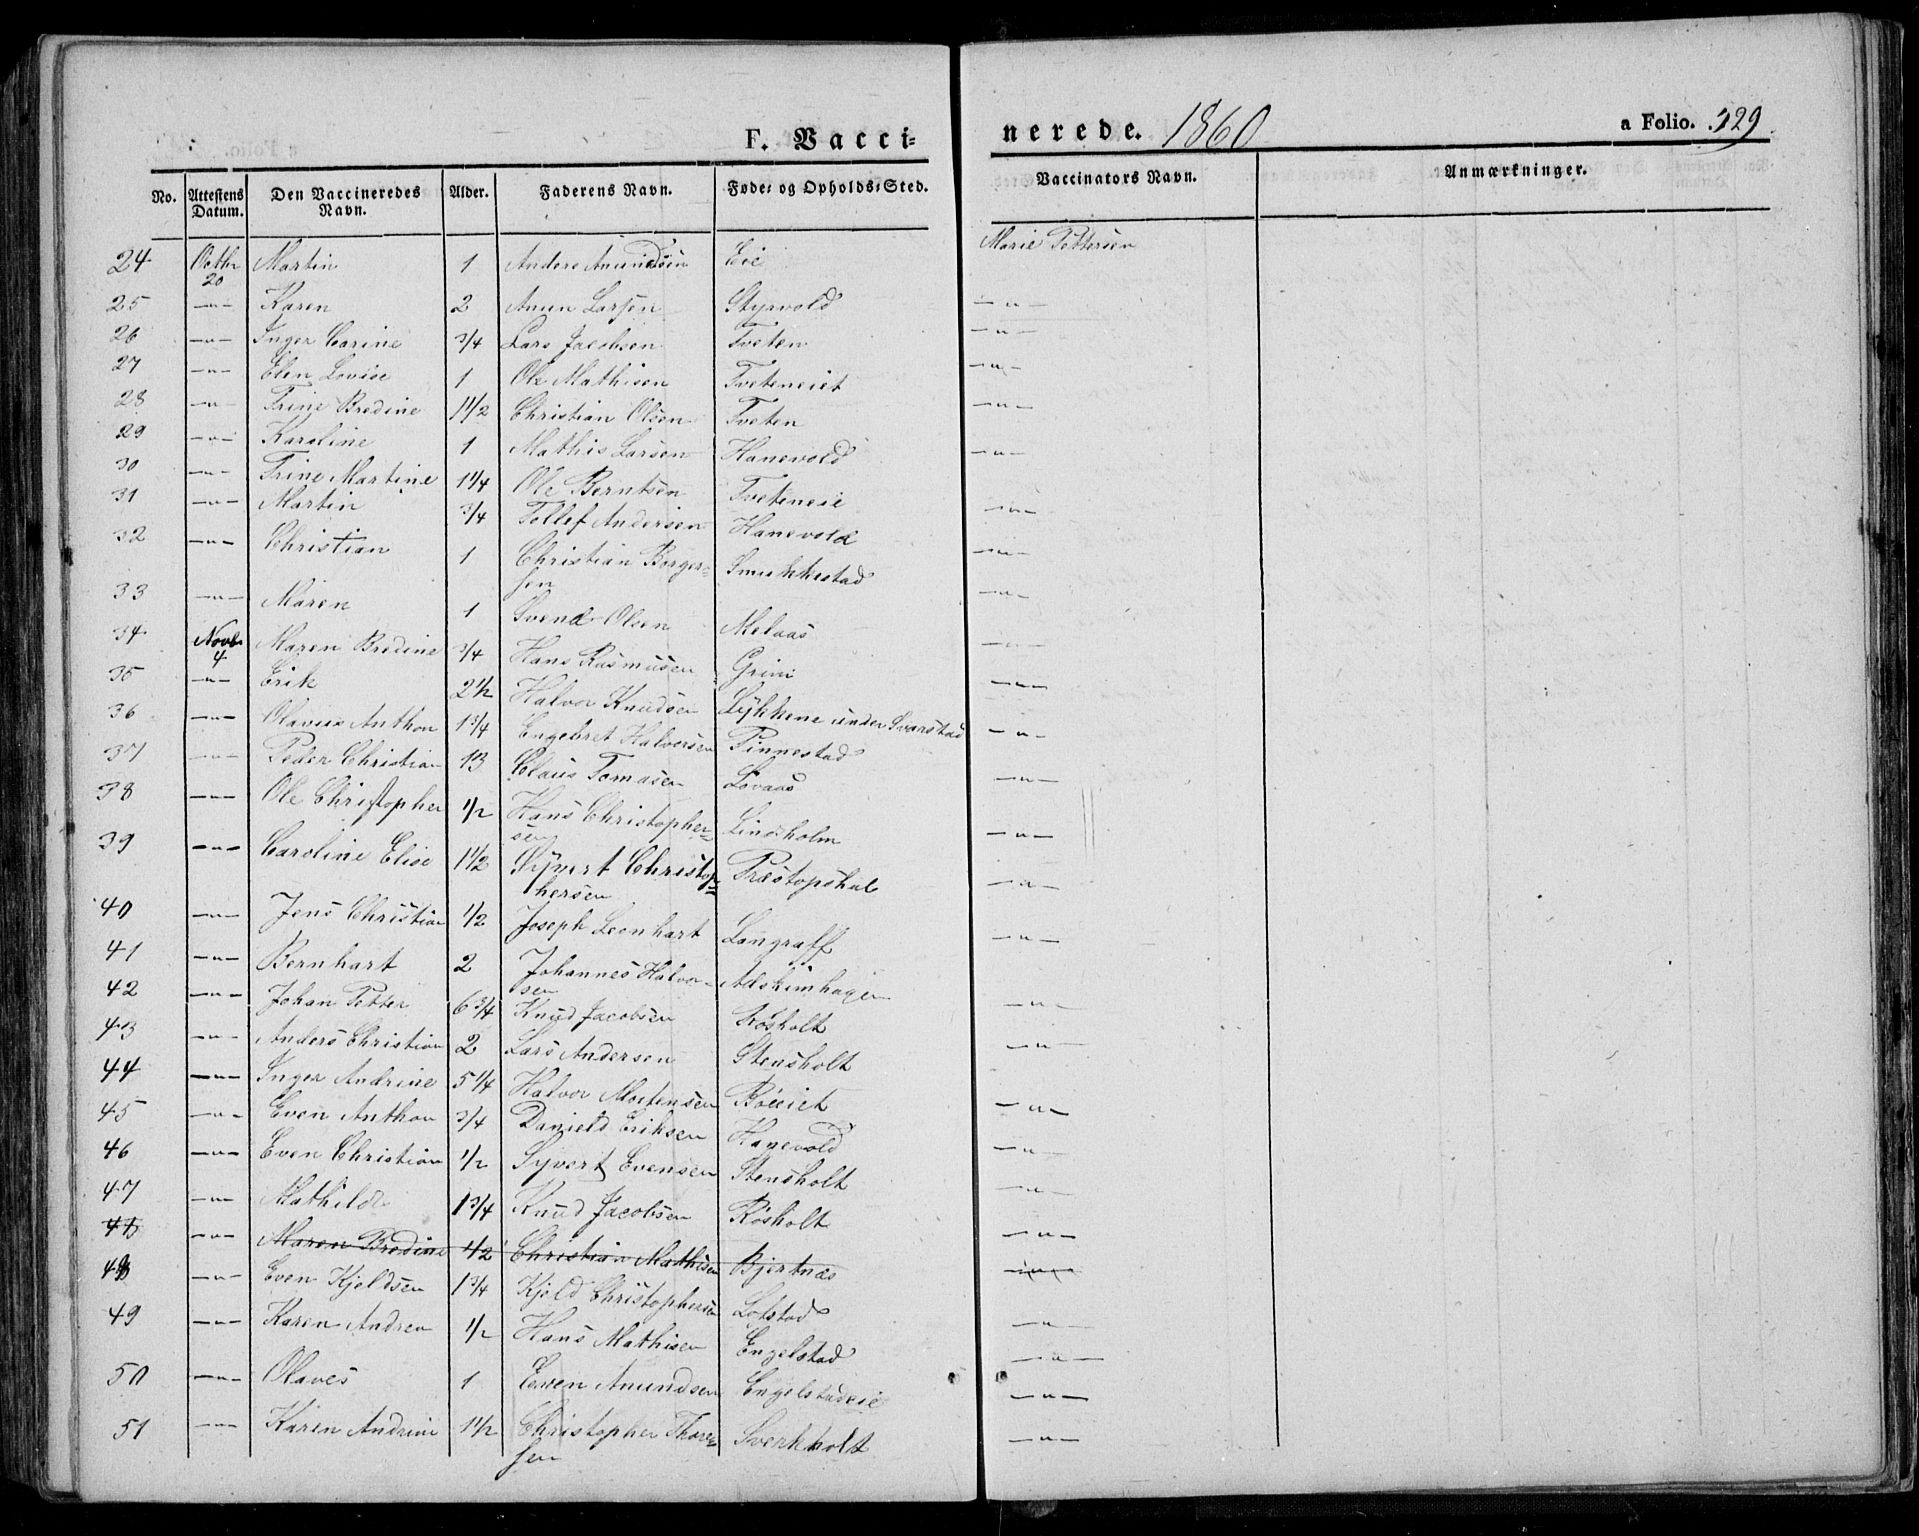 F. Vacci-
nerede. 1860
a Folio. 329.
No. Attestens Datum. Den Vaccineredes Navn. Alder. Faderens Navn. Føde- og Opholds-Sted. Vaccinators Navn. Anmærkninger.
24 Octbr 20 Martin 1 Anders Amundsen Eie Marie Pettersen
25 —"— Karen 2 Amun Larsen Styrvold —"—
26 —"— Inger Carine 3/4 Lars Jacobsen Tveten —"—
27 —"— Elen Lovise 1 Ole Mathisen Tveteneiet —"—
28 —"— Trine Bredine 1 1/2 Christian Olsen Tveten —"—
29 —"— Karoline 1 Mathis Larsen Hanevold —"—
30 —"— Trine Martine 1 1/4 Ole Berntsen Tveteneie
31 —"— Martin 3/4 Tollef Andersen Hanevold —"—
32 —"— Christian 1 Christian Borger- Smukkestad —"—
sen
33 —"— Maren 1 Svend Olsen Melaas —"—
34 Novbr 4 Maren Bredine 3/4 Hans Rasmusen Grini —"—
35 —"— Erik 2 1/2 Halvor Knudsen Løkkene under Svarstad —"—
36 —"— Olavus Anthon 1 3/4 Engebret Halvorsen Finnestad —"—
37 —"— Peder Christian 13 Claus Tomasen Lovaas —"—
38 —"— Ole Christopher 1/2 Hans Christopher- Lindholm —"—
sen
39 —"— Caroline Elise 1 1/2 Syvert Christop- Præstopshul —"—
hersen
40 —"— Jens Christian 1/2 Joseph Leenhart Langraff —"—
41 —"— Bernhart 2 Johannes Halvor- Adskimhagen —"—
sen
42 —"— Johan Petter 6 3/4 Knud Jacobsen Røsholt —"—
43 —"— Anders Christian 2 Lars Andersen Stensholt
44 —"— Inger Andrine 5 1/4 Halvor Mortensen Bøeiet —"—
45 —"— Even Anthon 3/4 Danield Eriksen Hanevold —"—
46 —"— Even Christian 1/2 Syvert Evensen Stensholt —"—
47 —"— Mathilde 1 3/4 Knud Jacobsen Røsholt —"—
48 —"— Maren Bredine 1/2 Christian Mathisen Bjertnæs —"—
48 —"— Even Kjeldsen 1 3/4 Kjeld Christophersen Lofstad —"—
49 —"— Karen Andrea 1/2 Hans Mathisen Engelstad —"—
50 —"— Olaves 1 Even Amundsen Engelstadeie —"—
51 —"— Karen Andrine 1 1/2 Christopher Thore- Sverkholt —"—
sen